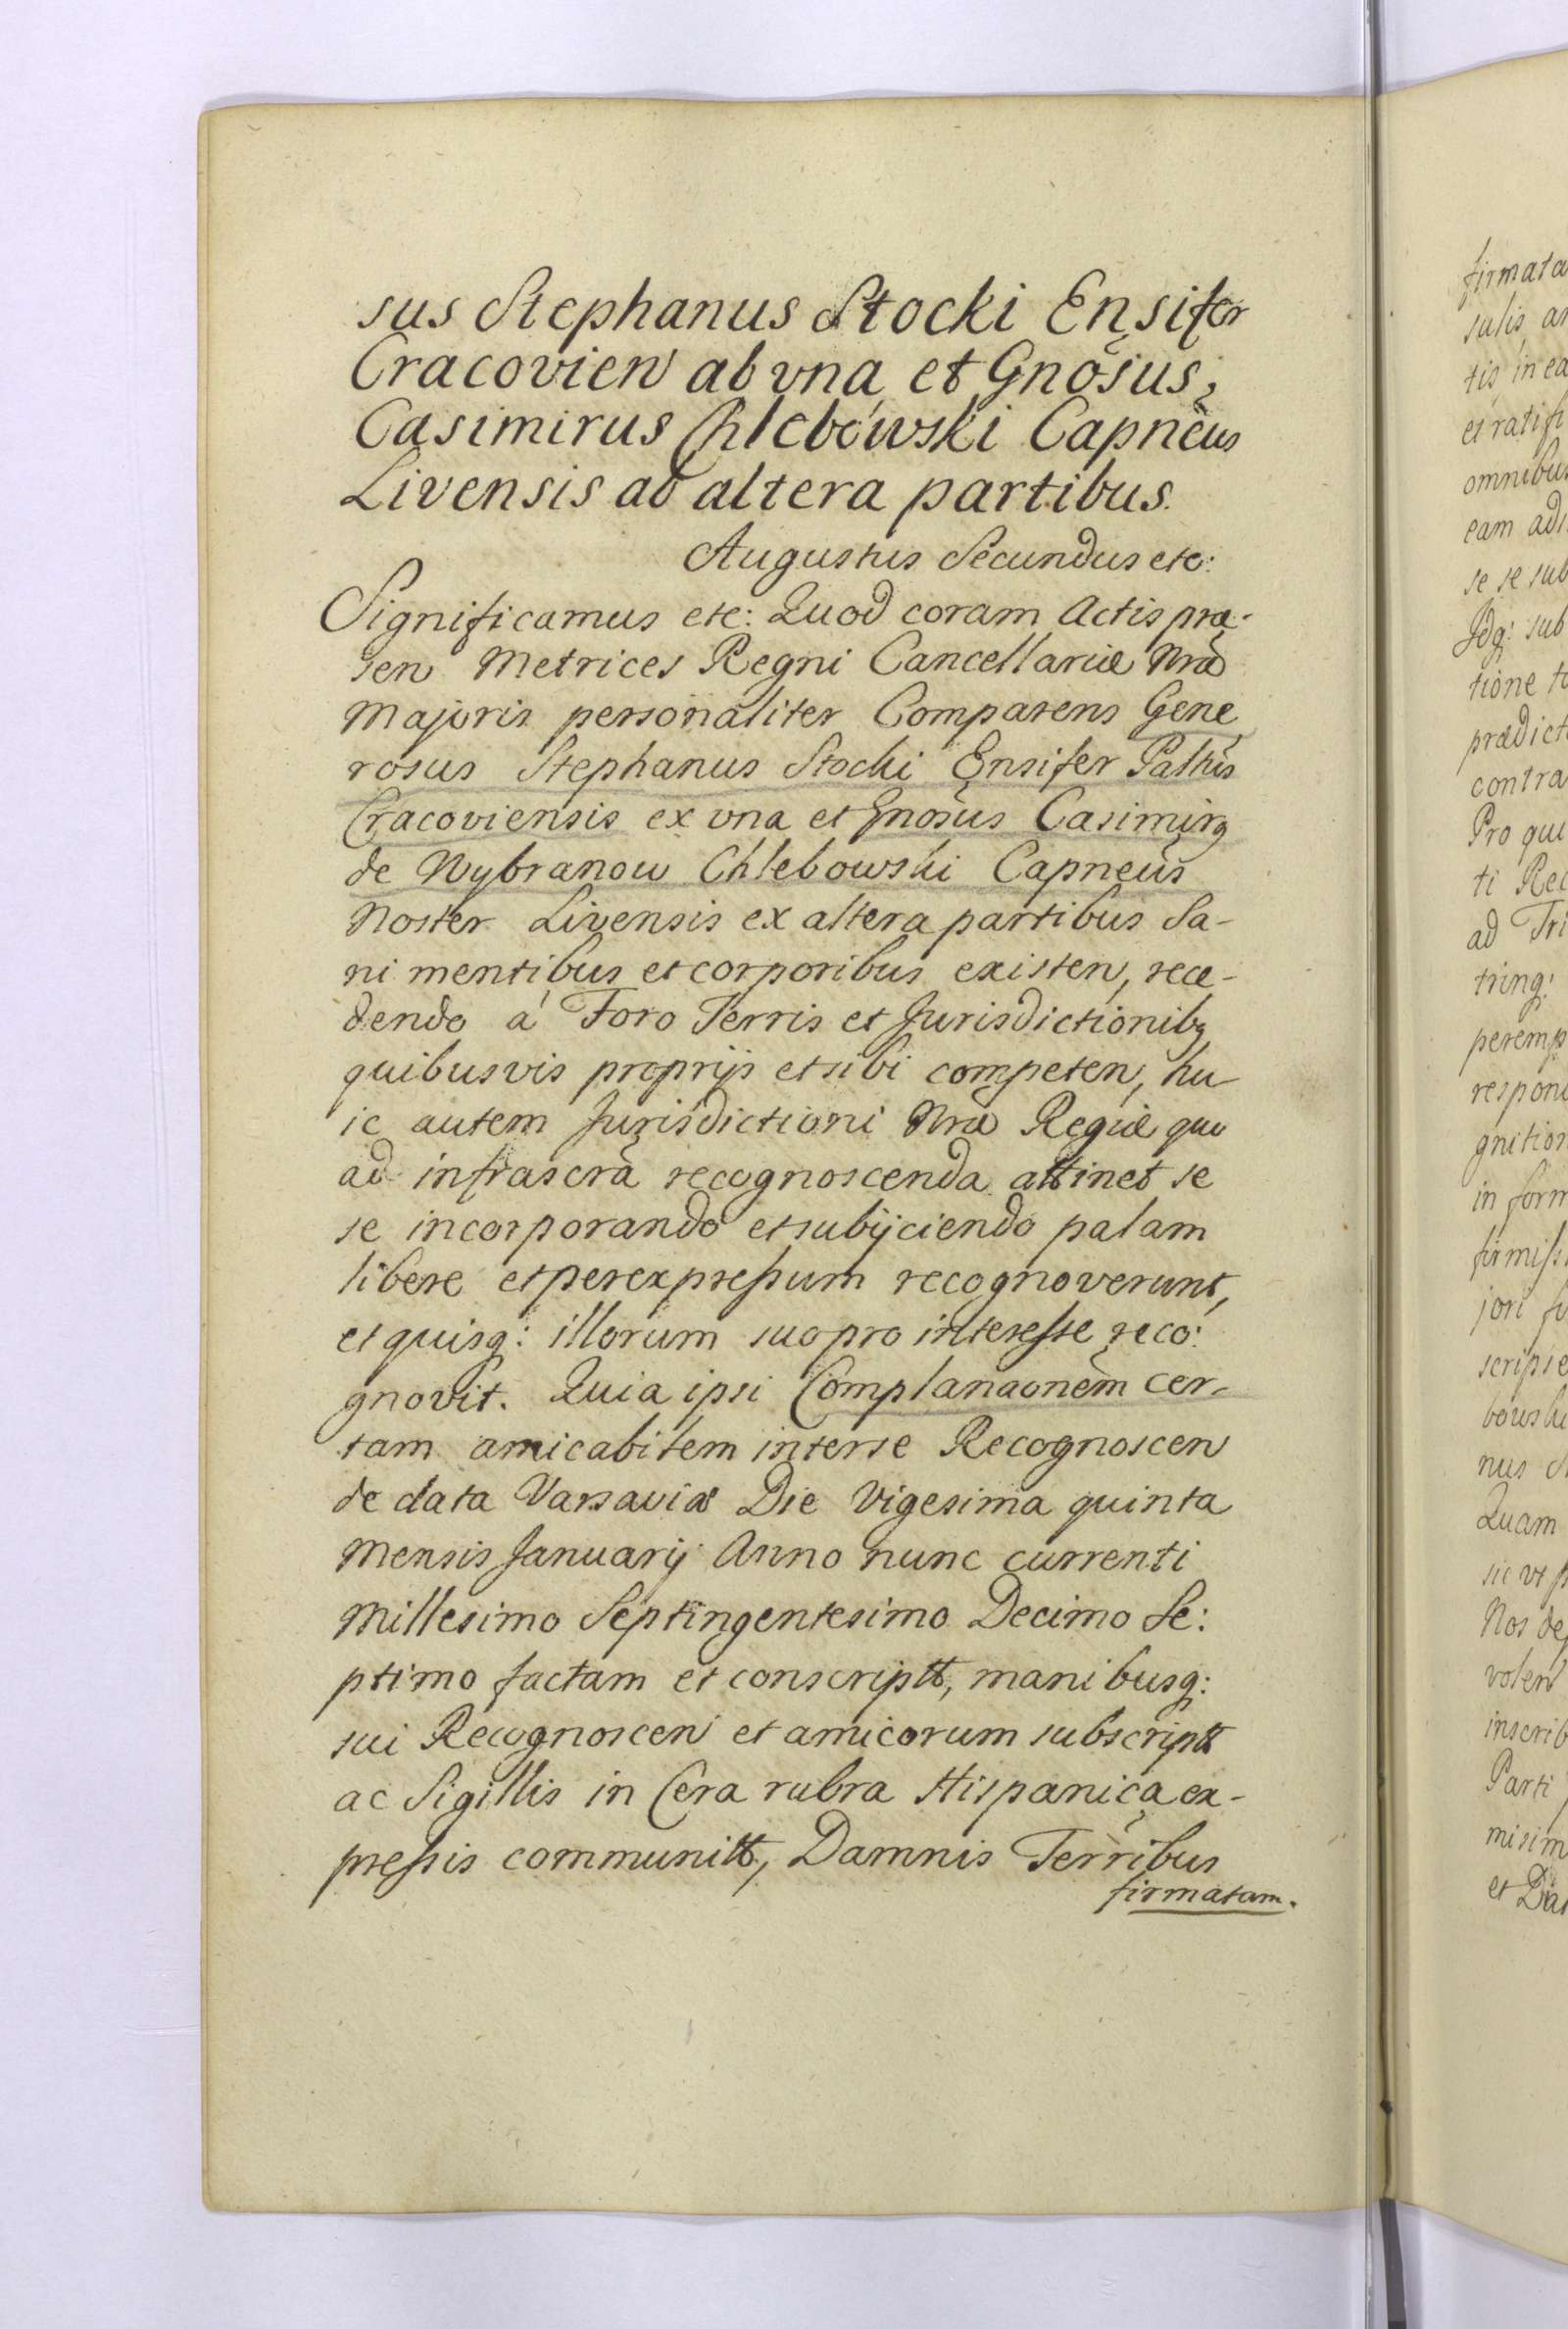 sus Stephanus Stocki Ensifer
Cracovien ab vna et Gnosus
Casimirus Chlebowski Capneus
Livensis ab altera partibus.
Augustus Secundus etc:
Significamus etc: Quod coram Actis præ-
sen Metrices Regni Cancellariæ Nræ
Majoris personaliter Comparens Gene
rosus Stephanus Stocki Ensifer Paltus
Cracoviensis ex vna et Gnosus Casimirg
de Wybranow Chlebowski Capneus
Noster Livensis ex altera partibus Sa-
ni mentibus et corporibus existen, rece-
dendo á Foro Terris et Jurisdictionibg
quibusvis proprijs et sibi competen, hu-
ic autem Jurisdictioni Nræ Regiæ quo
ad infrascra recognoscenda attinet se
se incorporando et subijciendo palam
libere et per expressum recognoverunt,
et quisq: illorum suo pro interesse reco:
gnovit. Quia ipsi Complanaonem cer-
tam amicabilem inter se Recognoscen
de data Varsaviæ Die Vigesima quinta
Mensis Januarij Anno nunc currenti
Millesimo Septingentesimo Decimo Se:
ptimo factam et conscriptt, manibusq:
sui Recognoscen et amicorum subscriptt
ac Sigillis in Cera rubra Hispanica ex-
pressis communitt, Damnis Terribus
firmatam.
firmata
tis in ea
et ratifi
omnibus
eam adi
se se sub
Jdq: sub
tione to
prædict
contra
Pro qui
ti Rec
ad Tri
tring:
peremp
respond
gnition
in form
firmissi
jori
scripse
nus S
Quam
sic vt p
Nos de
volen
inscrib
Parti
misim